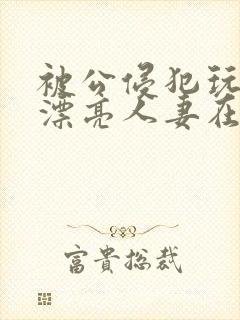 被公侵犯玩
漂亮人妻在
富貴総裁